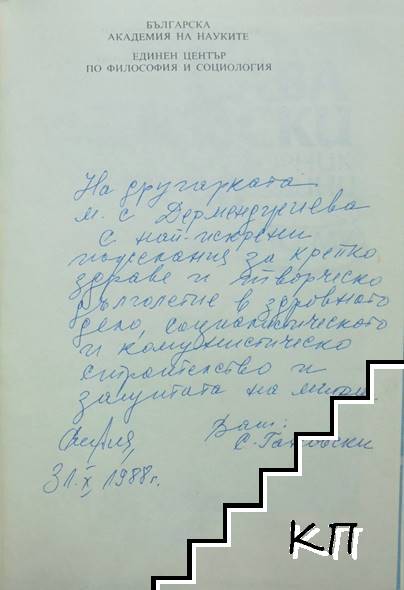 БЪЛГАРСКА
АКАДЕМИЯ НА НАУКИТЕ
ЕДИНЕН ЦЕНТЪР
ПО ФИЛОСОФИЯ И СОЦИОЛОГИЯ
На другарката
М. С Дермендгиева
с най-искрени
пожелания за крепко
здраве и творческо
дълголетие в здравното
дело, социалистическото
и комунистическо
строителство и
защитата на мира.
София, Ваш:
31.X.1988г. С. Гановски
КП